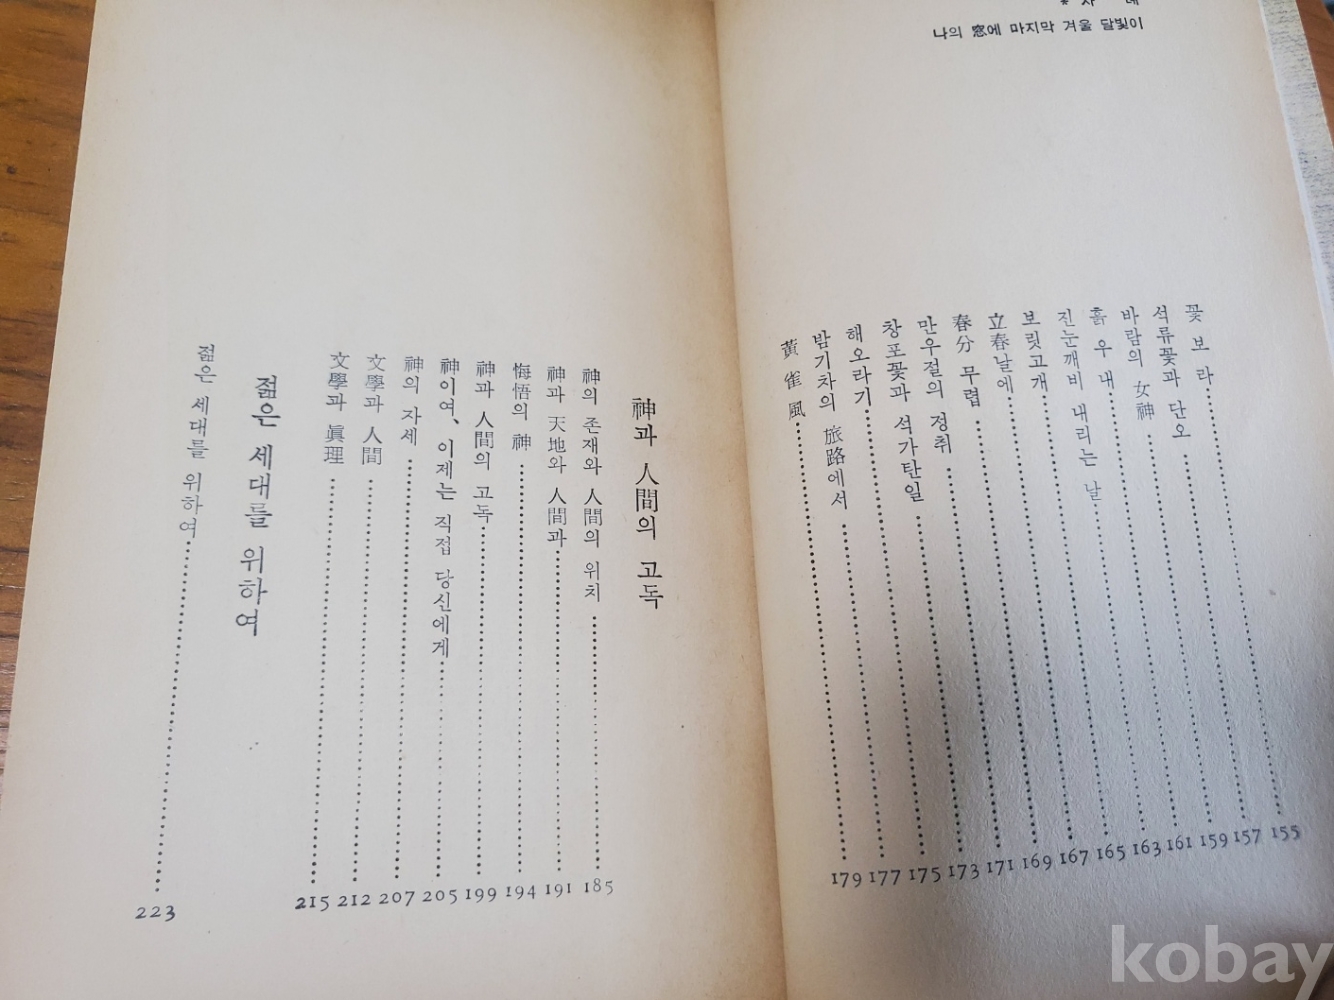 나의 窓에 마지막 겨울 달빛이
꽃 보 라 155
석류꽃과 단오 157
바람의 女神 159
흙 우 내 161
진눈깨비 내리는 날 163
보릿고개 165
立春날에 167
春分 무렵 169
만우절의 정취 171
창포꽃과 석가탄일 173
해오라기 175
밤기차의 旅路에서 177
黃 雀 風 179
神과 人間의 고독
神의 존재와 人間의 위치 185
神과 天地와 人間과 191
悔悟의 神 194
神과 人間의 고독 199
神이여、이제는 직접 당신에게 205
神의 자세 207
文學과 人間 212
文學과 眞理 215
젊은 세대를 위하여
젊은 세대를 위하여 223
kobay